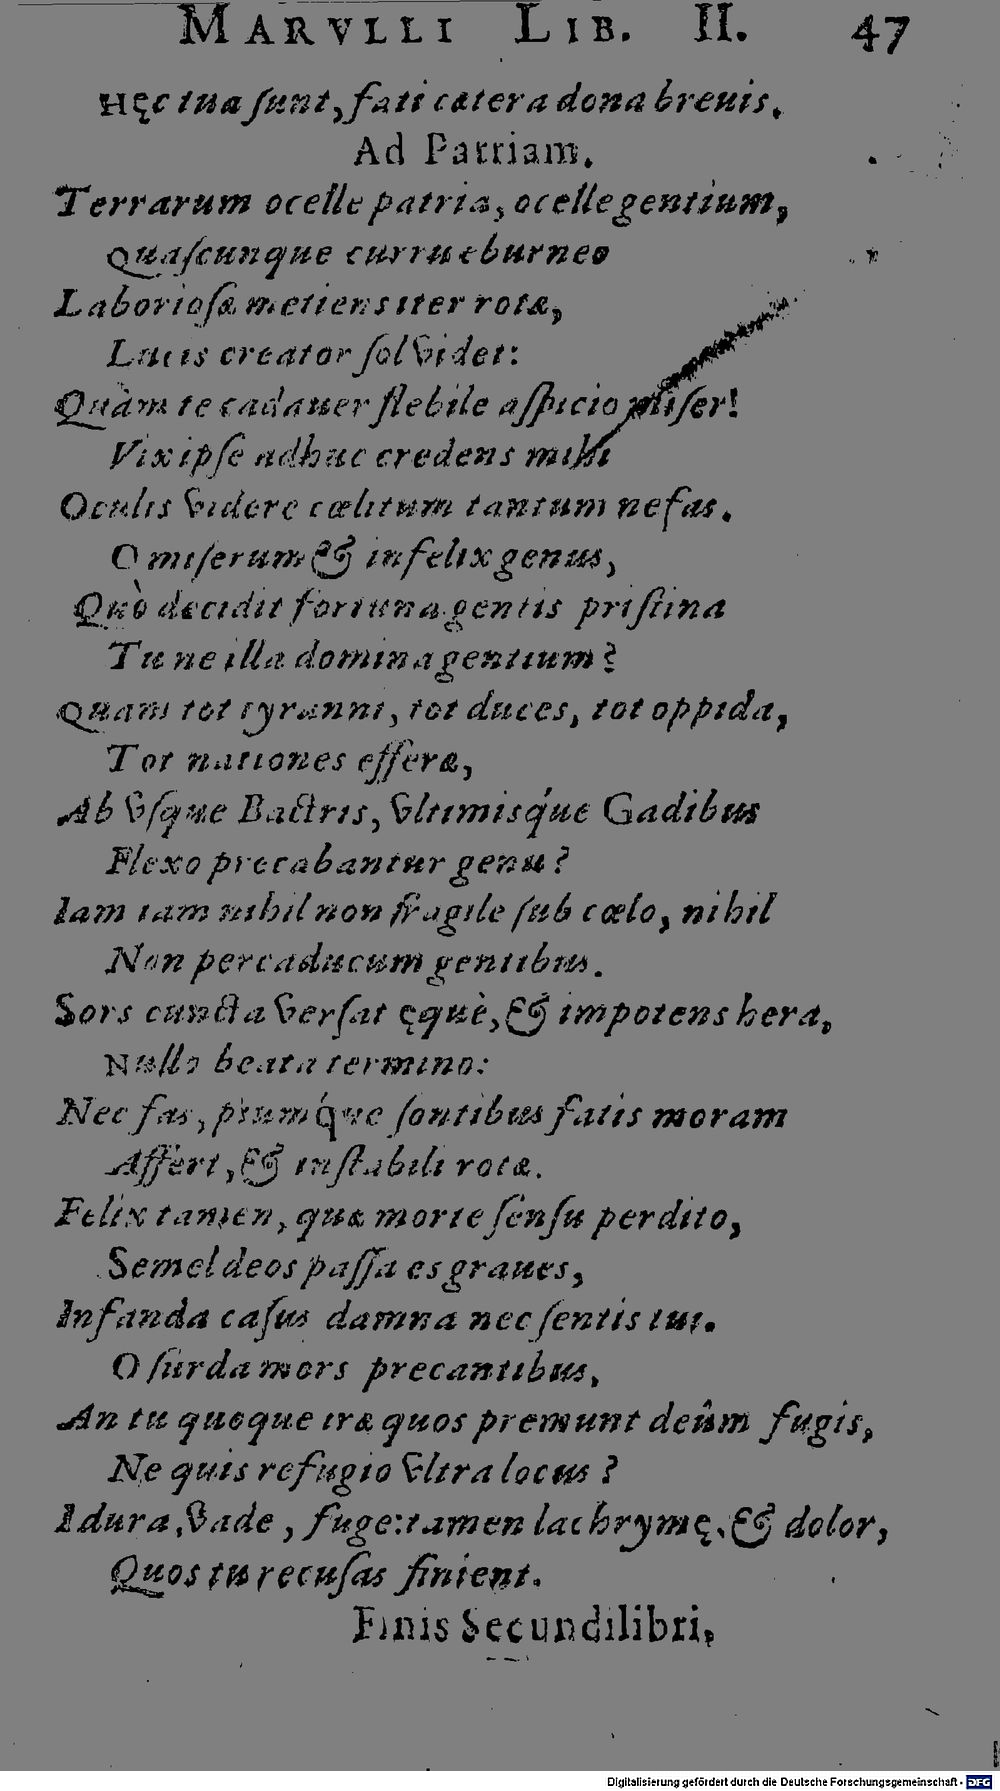 MARVLLI LIB. II. 47
Hęc tua ſunt, fati cætera dona breuis.
Ad Patriam.
Terrarum ocelle patria, ocelle gentium,
Quaſcunque curru eburneo
Laborioſæ metiens iter rotæ,
Lucis creator ſol videt:
Quàm te cadauer flebile aſpicio miſer!
Vix ipſe adhuc credens mihi
Oculis videre cœlitum tantum nefas.
O miſerum & infelix genus,
Quò decidit fortuna gentis priſtina
Tu ne illa domina gentium?
Quam tot tyranni, tot duces, tot oppida,
Tot nationes efferæ,
Ab vſque Bactris, vltimisq́ue Gadibus
Flexo precabantur genu?
Iam iam nihil non fragile ſub cœlo, nihil
Non percaducum gentibus.
Sors cuncta verſat ęquè, & impotens hera,
Nullo beata termino:
Nec fas, piumq́ue ſontibus fatis moram
Affert, & inſtabili rotæ.
Felix tamen, quæ morte ſenſu perdito,
Semel deos paſſa es graues,
Infanda caſus damna nec ſentis tui.
O ſurda mors precantibus,
An tu quoque iræ quos premunt deûm fugis,
Ne quis refugio vltra locus?
I dura, vade, fuge: tamen lachrymę, & dolor,
Quos tu recuſas finient.
Finis Secundi libri,
Digitalisierung gefördert durch die Deutsche Forschungsgemeinschaft - DFG